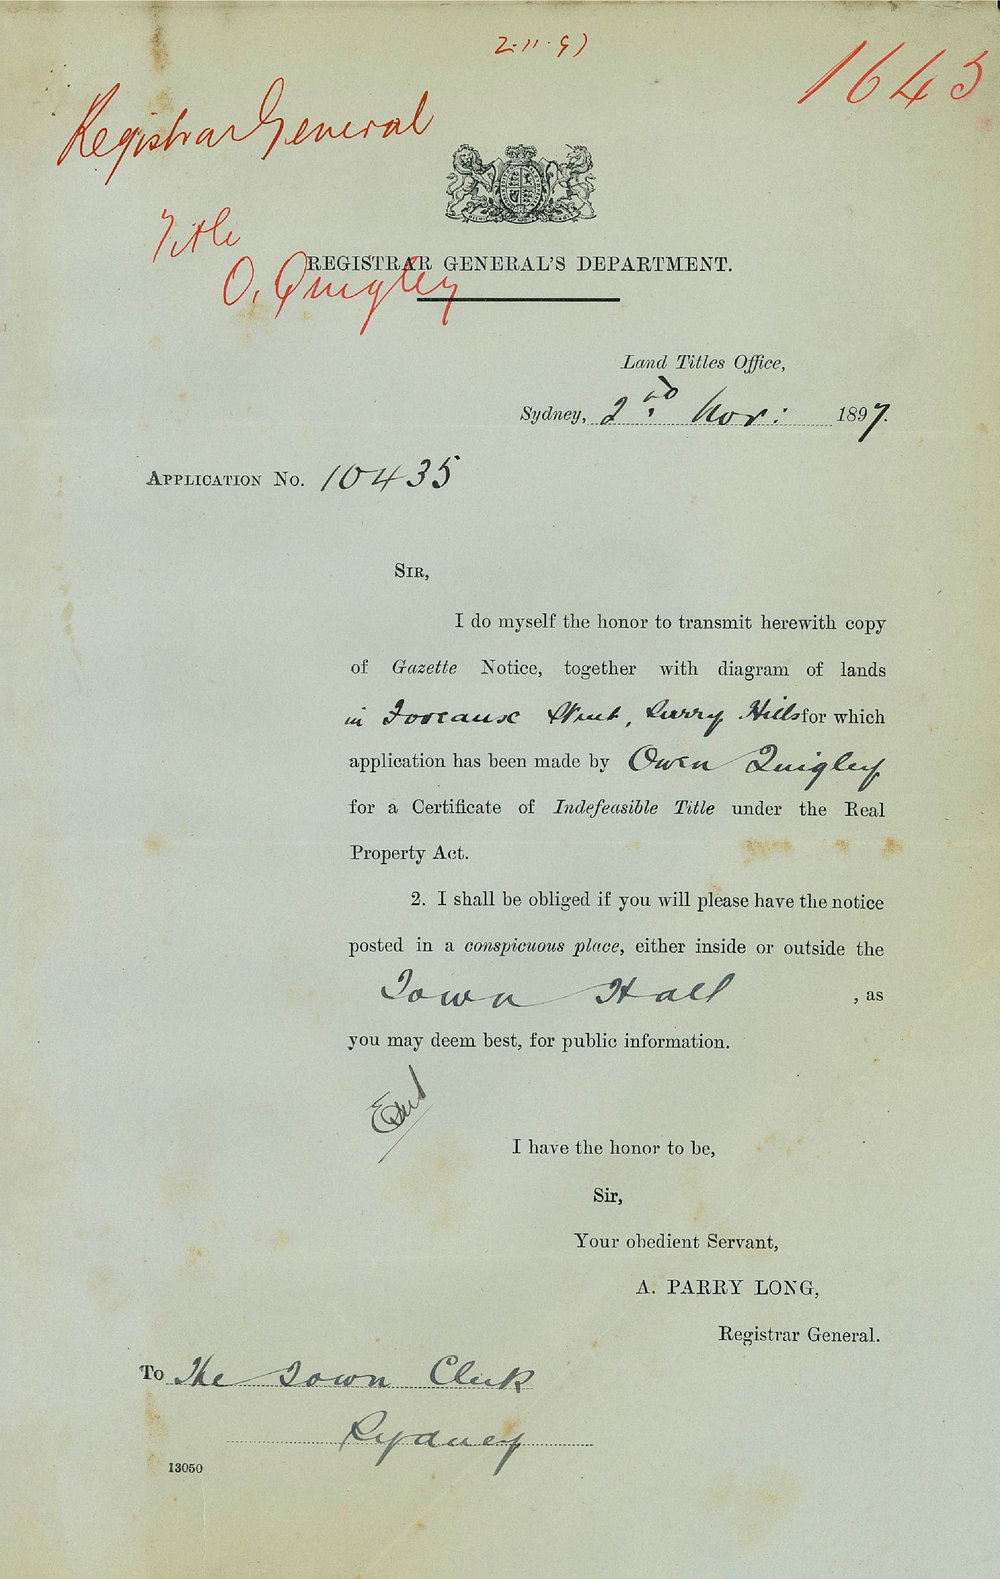 2.11.97
1643
Registrar General
Title
O. Quigley
REGISTRAR GENERAL'S DEPARTMENT.
Land Titles Office,
Sydney, 2nd Nov: 1897.
APPLICATION No. 10435
SIR,
I do myself the honor to transmit herewith copy
of Gazette Notice, together with diagram of lands
in Foveaux Street, Surry Hills for which
application has been made by Owen Quigley
for a Certificate of Indefeasible Title under the Real
Property Act.
2. I shall be obliged if you will please have the notice
posted in a conspicuous place, either inside or outside the
Town Hall, as
you may deem best, for public information.
I have the honor to be,
Sir,
Your obedient Servant,
A. PARRY LONG,
Registrar General.
To The Town Clerk
Sydney
13050